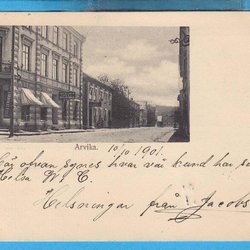 Arvika. 10/10 1901.
här ofvan synes hvar vår kund har
Helsa
Helsningar från Jacobs